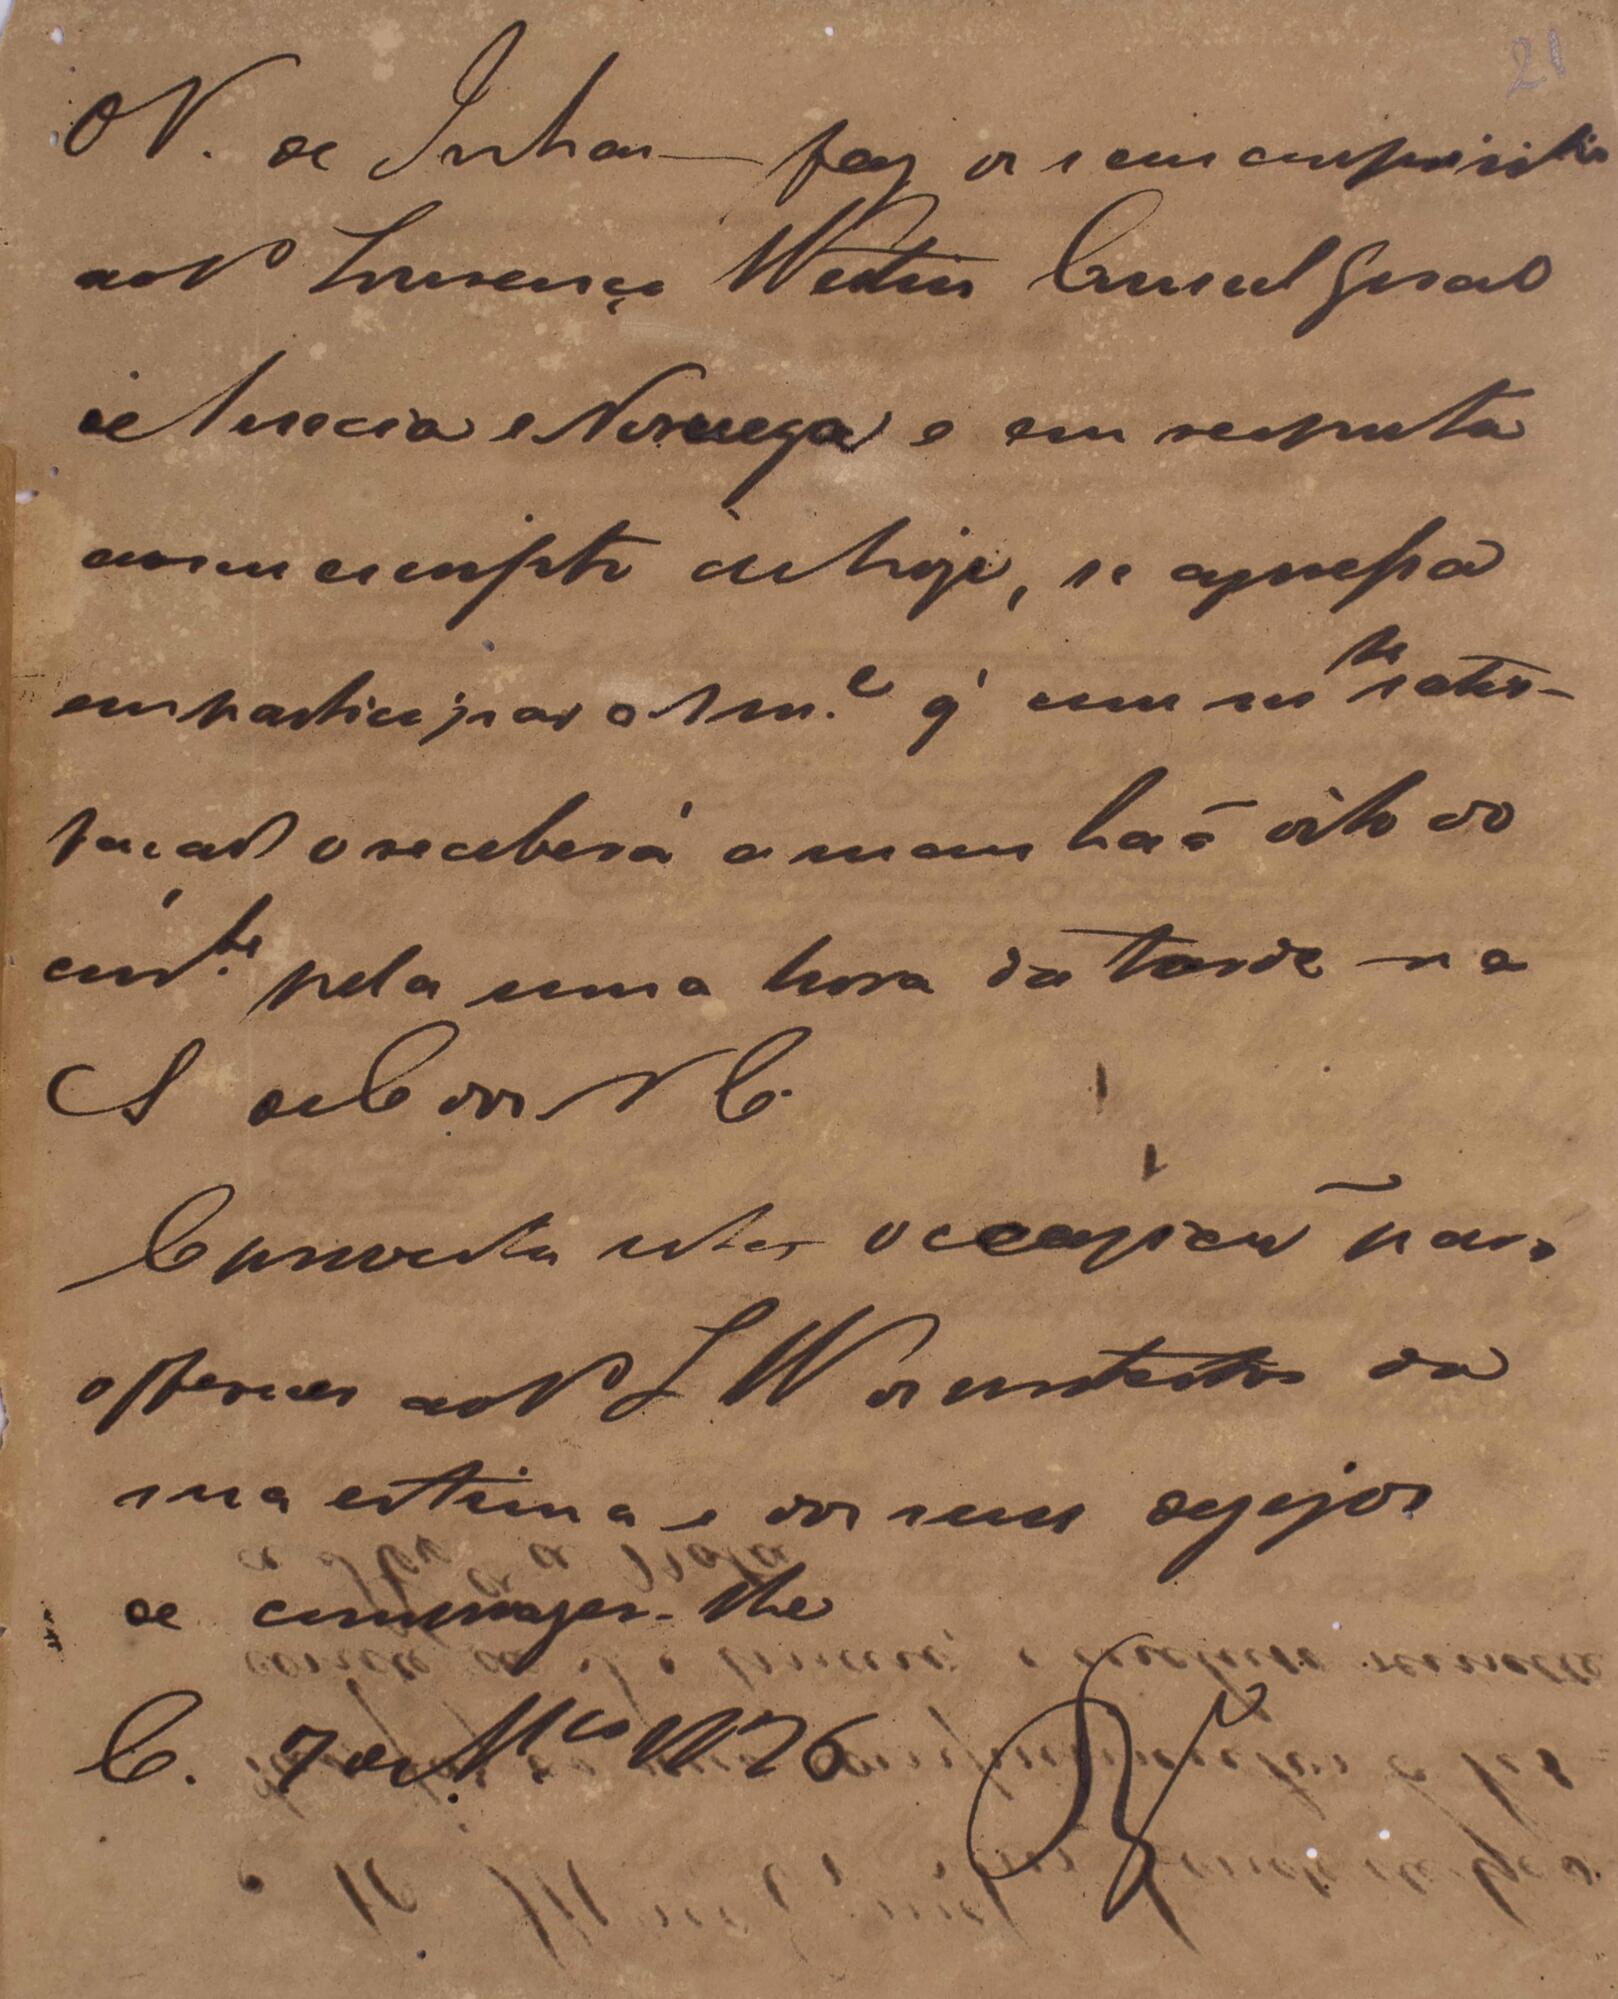 21
O V. de Inham— faz os seus cumprimtos
ao S Lourenço Westin Consul Geral
de Suecia e Noruega e em resposta
ao seu escripto de hoje, se apressa
em participar a S m.e q' com mta satis-
facaõ o receberá amanhaã oito do
corr.te pela uma hora da tarde na
S de E dos N E.
Aproveita esta occaziaõ para
offerecer ao S L W os protestos da
sua estima e dos seus dezejos
de comprazer-lhe
C. 7 de Mço 1826